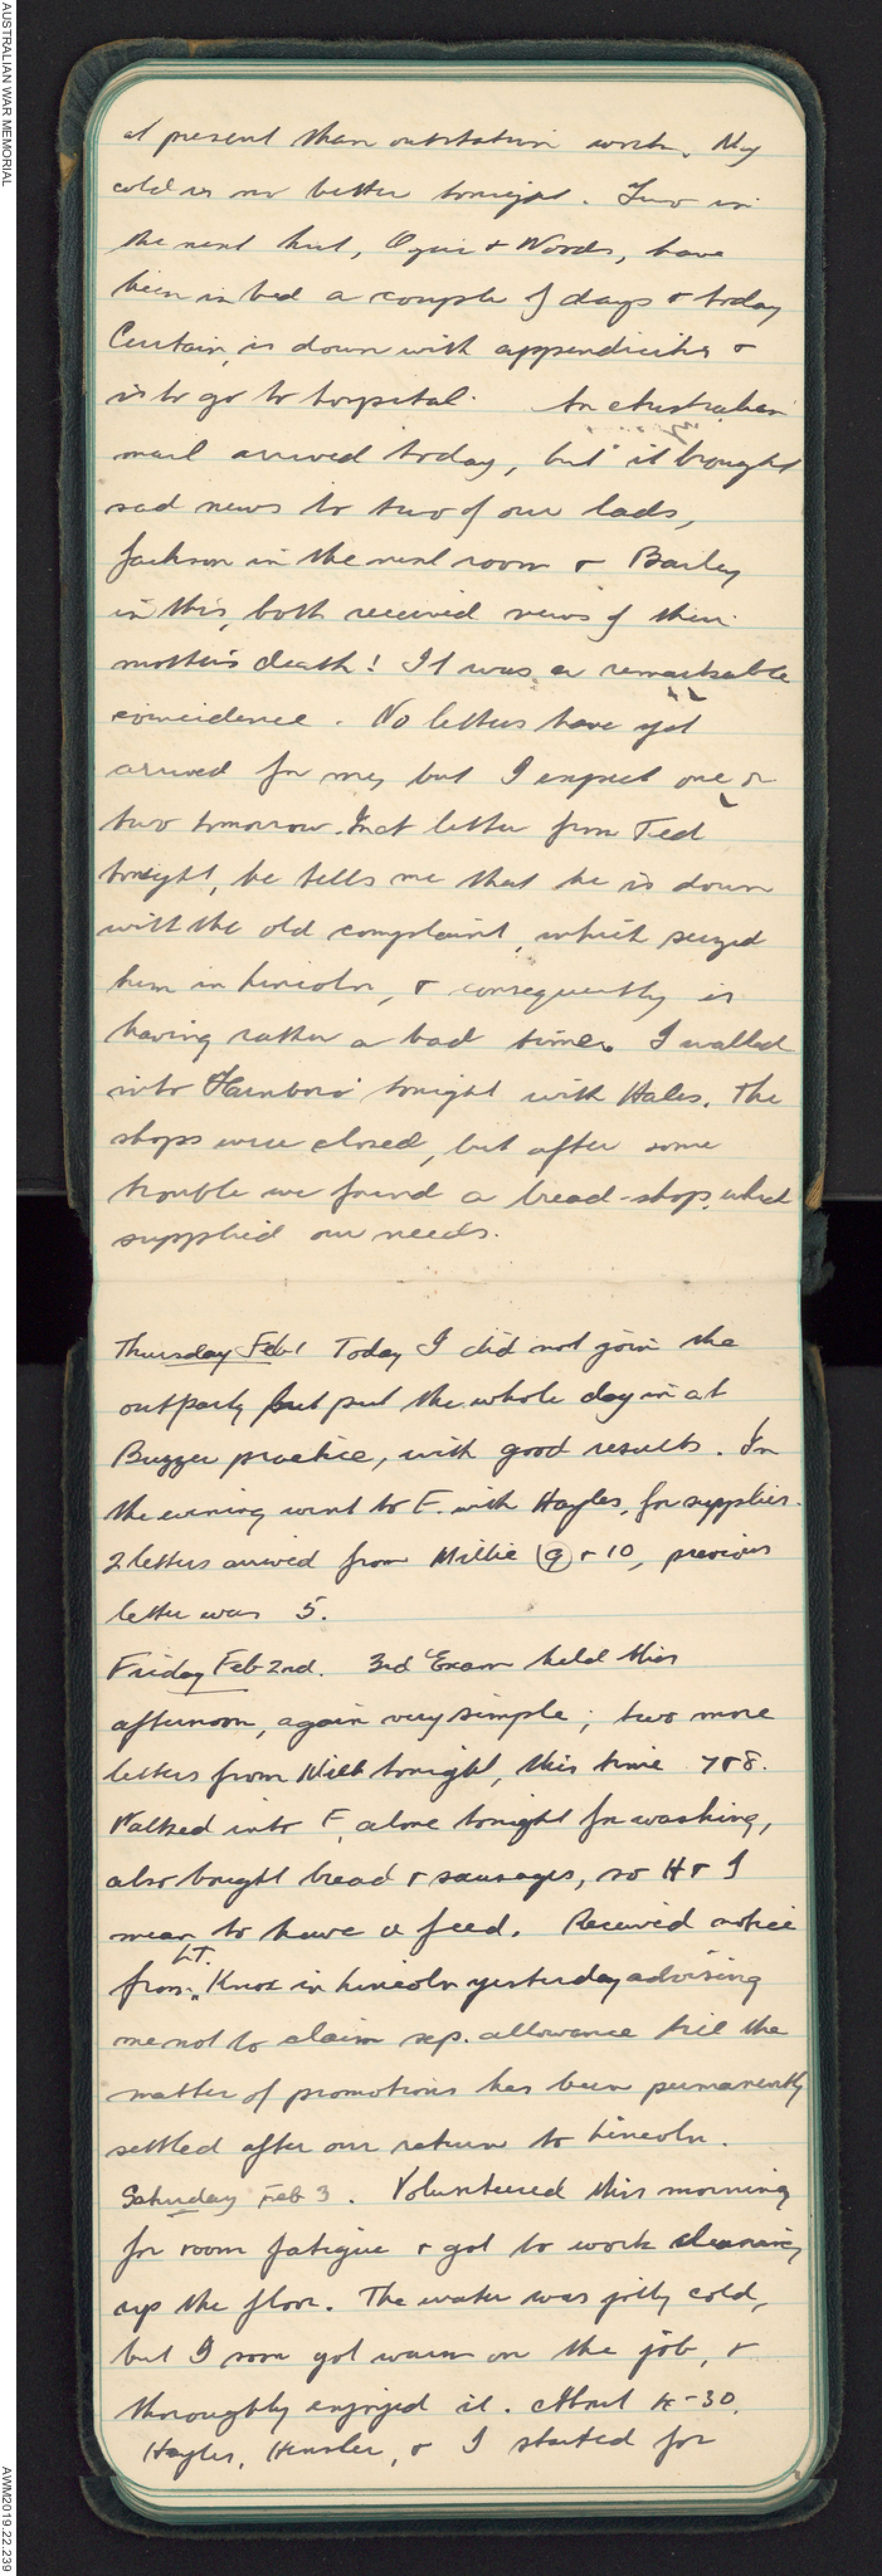 AUSTRALIAN WAR MEMORIAL
at present than outstation work. My
cold is no better tonight. Two in
the next hut, & Woods, have
been in bed a couple of days & today
Curtain, is down with appendicitis &
is to go to hospital. An Australian
mail arrived today, but it brought
sad news to two of our lads,
Jackson in the next room & Bailey
in this, both received news of their
mother's death! It was a remarkable
coincidence. No letters have yet
arrived for me, but I expect one or
two tomorrow. letter from Ted
tonight, he tells me that he is down
with the old complaint, which seized
him in Lincoln, & consequently is
having rather a bad time. I walked
into Farnboro' tonight with Hales. The
shops were closed, but after some
trouble we found a bread-shop, which
supplied our needs.
Thursday Feb 1 Today I did not join the
outparty but put the whole day in at
Buzzer practice, with good results. In
the evening went to F. with Hayles, for supplies.
2 letters arrived from Millie 9 & 10, previous
letter was 5.
Friday Feb 2nd. 3rd Exam held this
afternoon, again very simple; two more
letters from Mill tonight, this time 7 & 8.
Walked into F, alone tonight for washing,
also bought bread & sausages, so H & I
mean to have a feed. Received notice
from LT. Knox in Lincoln yesterday advising
me not to claim sep. allowance till the
matter of promotions has been permanently
settled after our return to Lincoln.
Saturday Feb 3. Volunteered this morning
for room fatigue & got to work cleaning
up the floor. The water was jolly cold,
but I soon got warm on the job, &
thoroughly enjoyed it. About 4-30,
Hayles, Hensler, & I started for
AWM2019.22.239